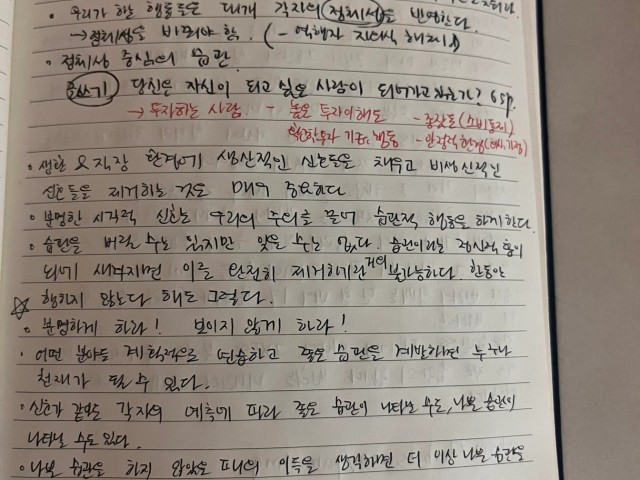 • 우리가 하는 행동들은 대개 각자의 정체성을 반영한다.
→ 정체성을 바꿔야 함. (- 역행자 자의식 해체)
• 정체성 중심의 습관
글쓰기 당신은 자신이 되고 싶은 사람이 되어가고 있는가? 65p.
→ 투자하는 사람 - 높은 투자이해도 - 종잣돈(소비통제)
투자 기준, 행동 - 안정적 환경(회사, 가정)
• 생활 & 직장 환경에 생산적인 신호들을 채우고 비생산적인
신호들을 제거하는 것도 매우 중요하다.
• 분명한 시각적 신호는 우리의 주의를 끌어 습관적 행동을 하게 한다.
• 습관을 버릴 수는 있지만 잊을 수는 없다. 습관이라는 정신적 홈이
뇌에 새겨지면 이를 완전히 제거하기란 거의 불가능하다. 한동안
행하지 않는다 해도 그렇다.
☆
• 분명하게 하라! 보이지 않게 하라!
• 어떤 분야든 계획적으로 연습하고 좋은 습관을 계발하면 누구나
천재가 될 수 있다.
• 신호가 같아도 각자의 예측에 따라 좋은 습관이 나타날 수도, 나쁜 습관이
나타날 수도 있다.
• 나쁜 습관을 하지 않았을 때의 이득을 생각하면 더 이상 나쁜 습관을